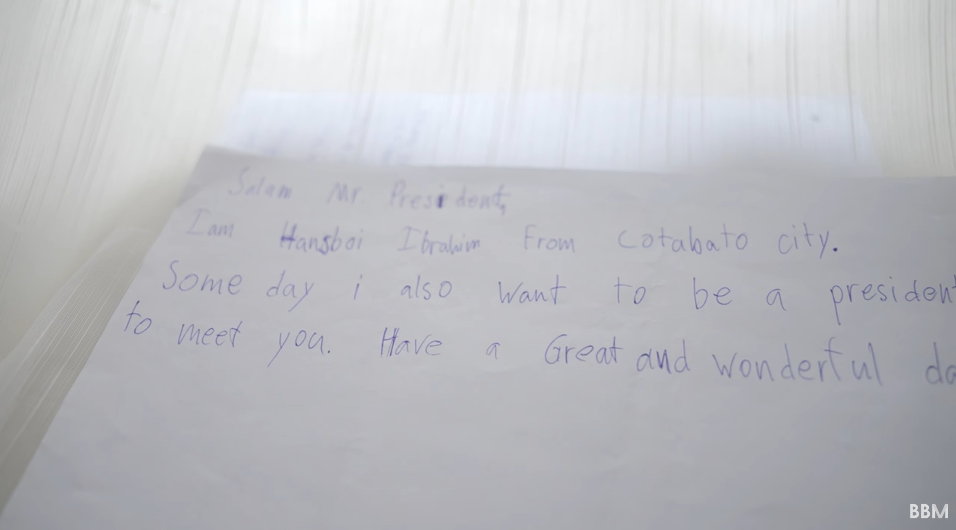 Salam Mr. President,
I am Hansboi Ibrahim From cotabato city.
Some day i also want to be a president
to meet you. Have a Great and wonderful da
BBM